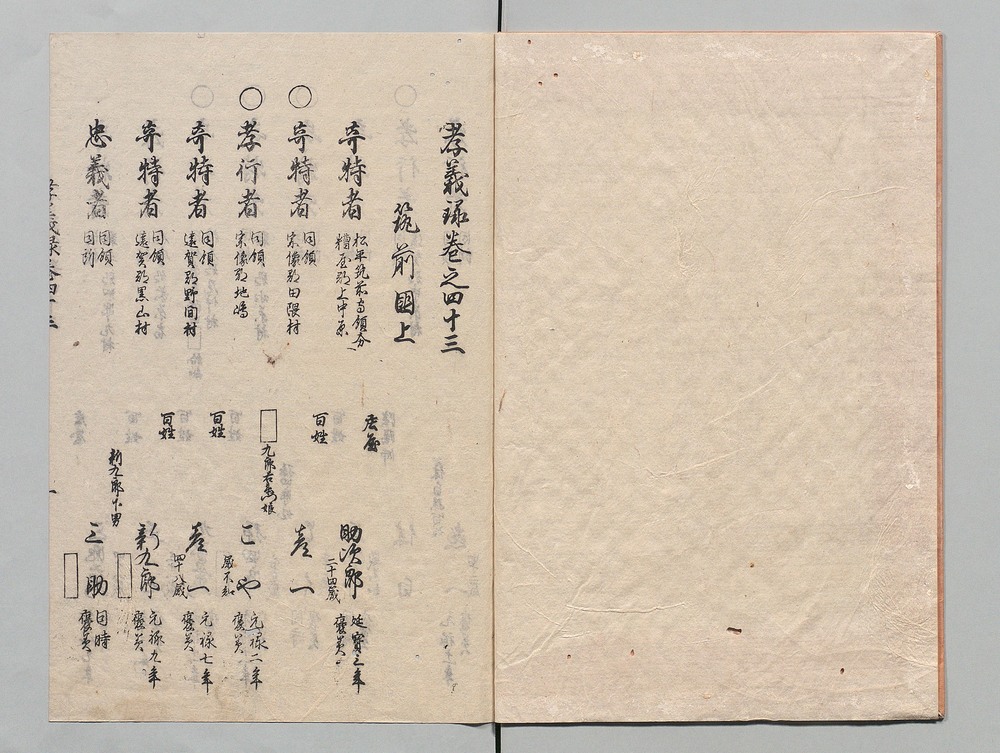 孝義録巻之四十三
筑前国上
奇特者 松平筑前守領分 糟屋郡上中原 庄屋 助次郎 二十四歳 延宝三年 褒美
○奇特者 同領 宗像郡田隈村 百姓 彦一
○孝行者 同領 宗像郡地嶋 九郎右衛門娘 こや 歳不知 元禄二年 褒美
奇特者 同領 遠賀郡野間村 百姓 彦一 四十八歳 元禄七年 褒美
奇特者 同領 遠賀郡黒山村 百姓 新九郎 元禄九年 褒美
忠義者 同領 同所 新九郎下男 三助 同時 褒美
孝義録巻四十三
一